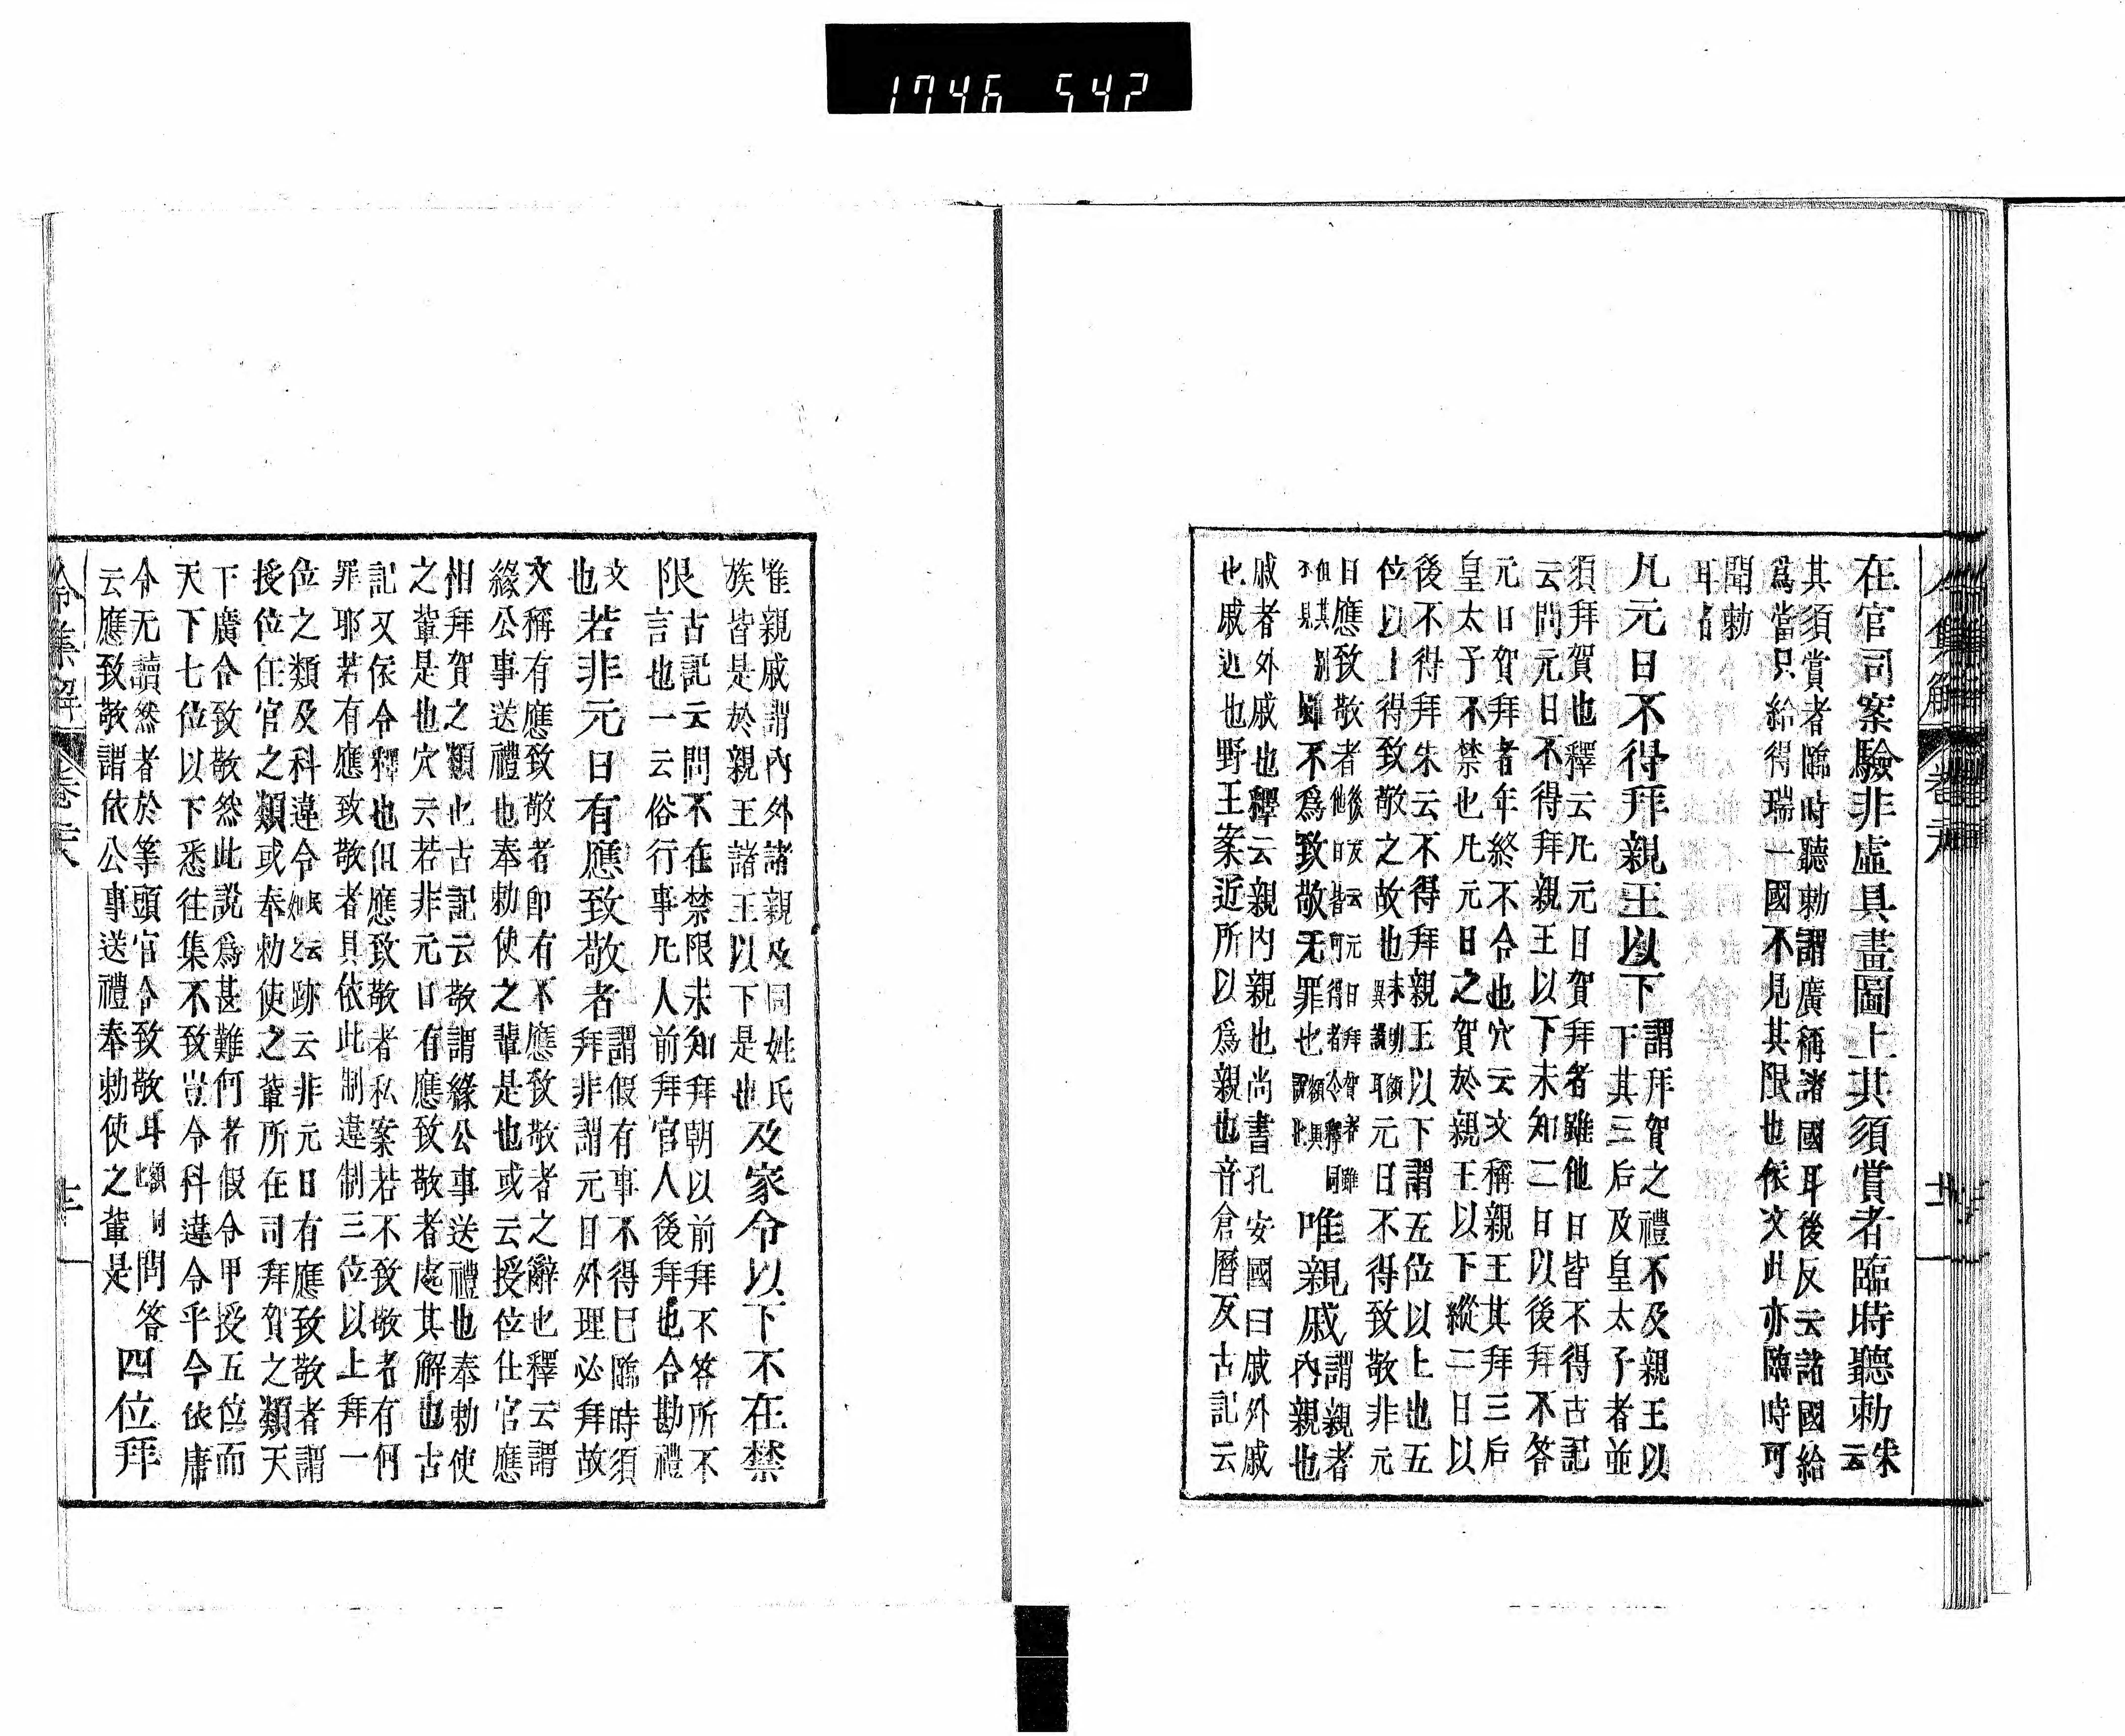 1746 542
在官司案驗非虛具畫圖上其須賞者臨時聽勅朱云
其須賞者臨時聽勅謂廣稱諸國耳後反云諸國給
爲當只給得瑞一國不見其限也依文此亦臨時可
聞勅
耳
凡元日不得拜親王以下
謂拜賀之禮不及親王以
下其三后及皇太子者並
須拜賀也釋云凡元日賀拜者雖他日皆不得古記
云問元日不得拜親王以下未知二日以後拜不答
元日賀拜者年終不令也穴云文稱親王其拜三后
皇太子不禁也凡元日之賀於親王以下縱二日以
後不得拜朱云不得拜親王以下謂五位以上也五
位以上得致敬之故也
元日不得致敬非元
日應致敬者
雖不爲致敬无罪也
唯親戚
謂親者
內親也
戚者外戚也釋云親內親也尚書孔安國曰戚外戚
也戚近也野王案近所以爲親也音倉曆反古記云
唯親戚謂內外諸親及同姓氏
族皆是於親王諸王以下是也
及家令以下不在禁
限
古記云問不在禁限未知拜朝以前拜不答所不
言也一云俗行事凡人前拜官人後拜也合勘禮
文
也
若非元日有應致敬者
謂假有事不得已臨時須
拜非謂元日外理必拜故
文稱有應致敬者卽有不應致敬者之辭也釋云謂
緣公事送禮也奉勅使之輩是也或云授位仕官應
相拜賀之類也古記云敬謂緣公事送禮也奉勅使
之輩是也穴云若非元日有應致敬者處其解也古
記又依令釋也但應致敬者私案若不致敬者有何
罪耶若有應致敬者具依此制違制三位以上拜一
位之類及科違令
跡云非元日有應致敬者謂
授位任官之類或奉勅使之輩所在司拜賀之類天
下廣令致敬然此說爲甚難何者假令甲授五位而
天下七位以下悉往集不致豈令科違令乎今依唐
令无讀然者於等頭官令致敬耳
問答
云應致敬謂依公事送禮奉勅使之輩是
四位拜
令集解
卷六